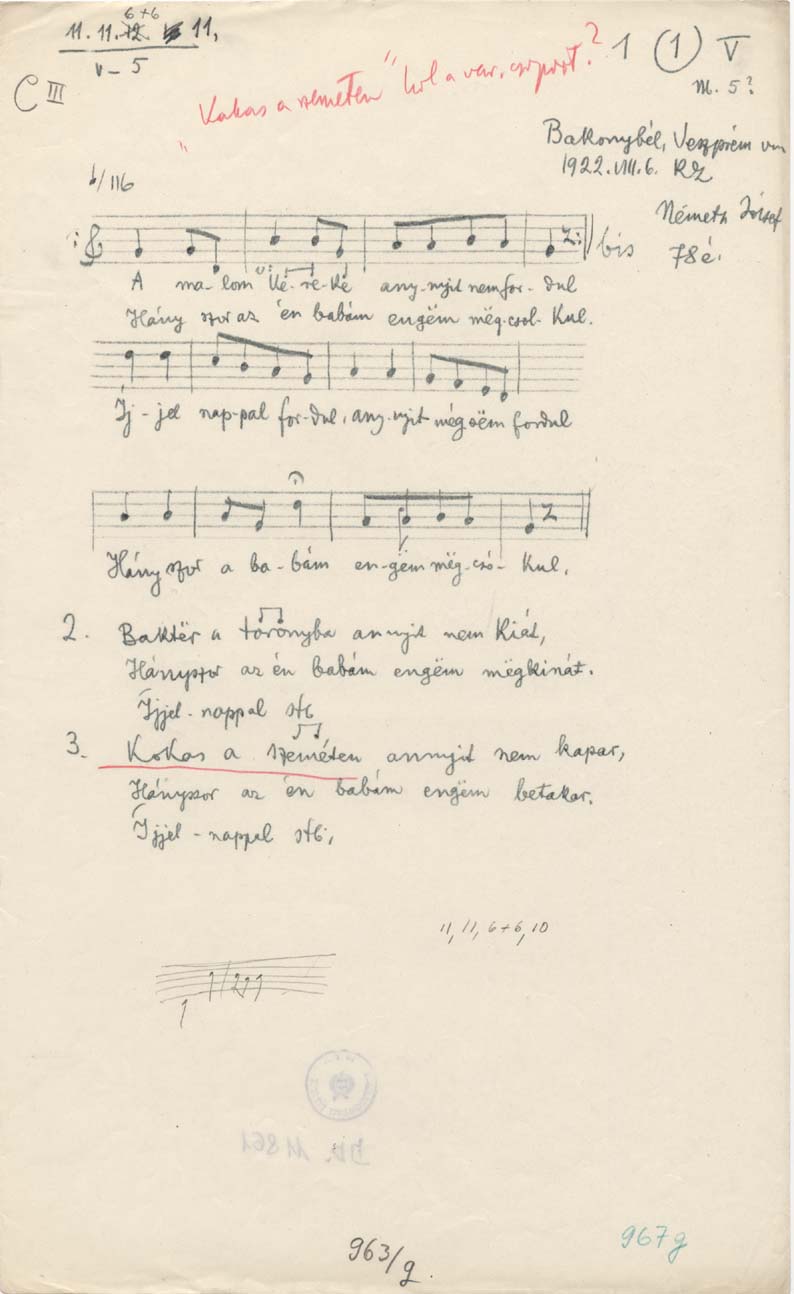 6+6
11. 11. 12. 11,
V – 5
C III
"Kakas a szemeten" hol a var. csoport?
1 (1) V
M. 5?
Bakonybél, Veszprém vm
1922. VIII. 6. RZ
Németh József
78 é.
b/116
bis
A ma-lom ke-re-ke any-nyit nem for-dul
Hány szor az én babám engëm mëg-csol-kul.
Íj-jel nap-pal for-dul, any-nyit mégsëm fordul
Hány szor a ba-bám en-gëm mëg-csó-kul.
2. Baktër a toronyba annyit nem kiát,
Hányszor az én babám engëm mëgkinát.
Íjjel-nappal stb
3. Kokas a szeméten annyit nem kapar,
Hányszor az én babám engëm betakar.
Íjjel-nappal stb.
11, 11, 6+6, 10
963/g.
967g